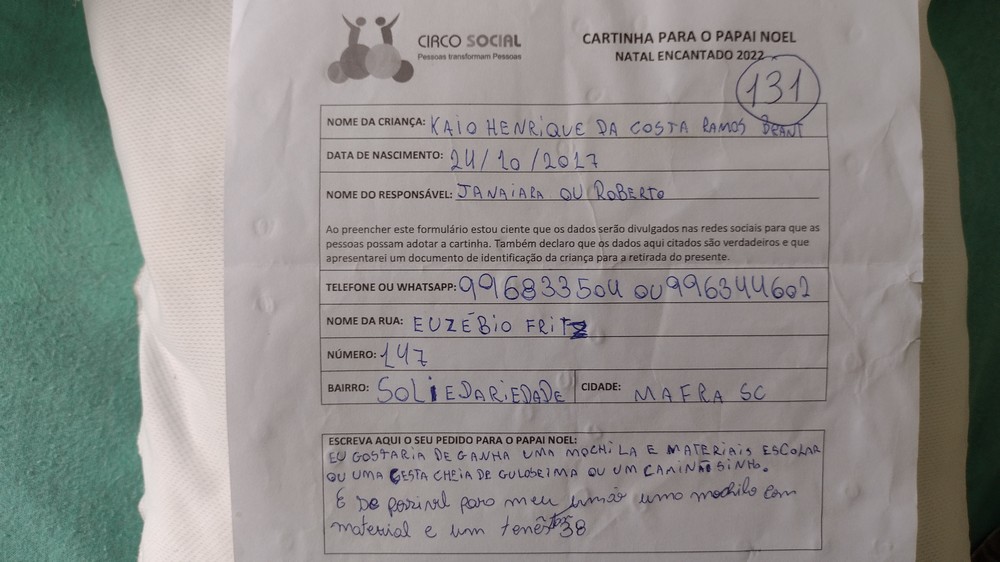 CIRCO SOCIAL
Pessoas transformam Pessoas
CARTINHA PARA O PAPAI NOEL
NATAL ENCANTADO 2022
131
NOME DA CRIANÇA: KAIO HENRIQUE DA COSTA RAMOS BRANT
DATA DE NASCIMENTO: 24/10/2017
NOME DO RESPONSÁVEL: JANAIARA OU ROBERTO
Ao preencher este formulário estou ciente que os dados serão divulgados nas redes sociais para que as
pessoas possam adotar a cartinha. Também declaro que os dados aqui citados são verdadeiros e que
apresentarei um documento de identificação da criança para a retirada do presente.
TELEFONE OU WHATSAPP: 996833504 OU 996344602
NOME DA RUA: EUZÉBIO FRITZ
NÚMERO: 147
BAIRRO: SOLIEDARIEDADE CIDADE: MAFRA SC
ESCREVA AQUI O SEU PEDIDO PARA O PAPAI NOEL:
EU GOSTARIA DE GANHA UMA MOCHILA E MATERIAIS ESCOLAR
OU UMA CESTA CHEIA DE GULOSEIMA OU UM CAMINÃOSINHO.
E De possivel para meu irmão uma mochila com
material e um tenês 38